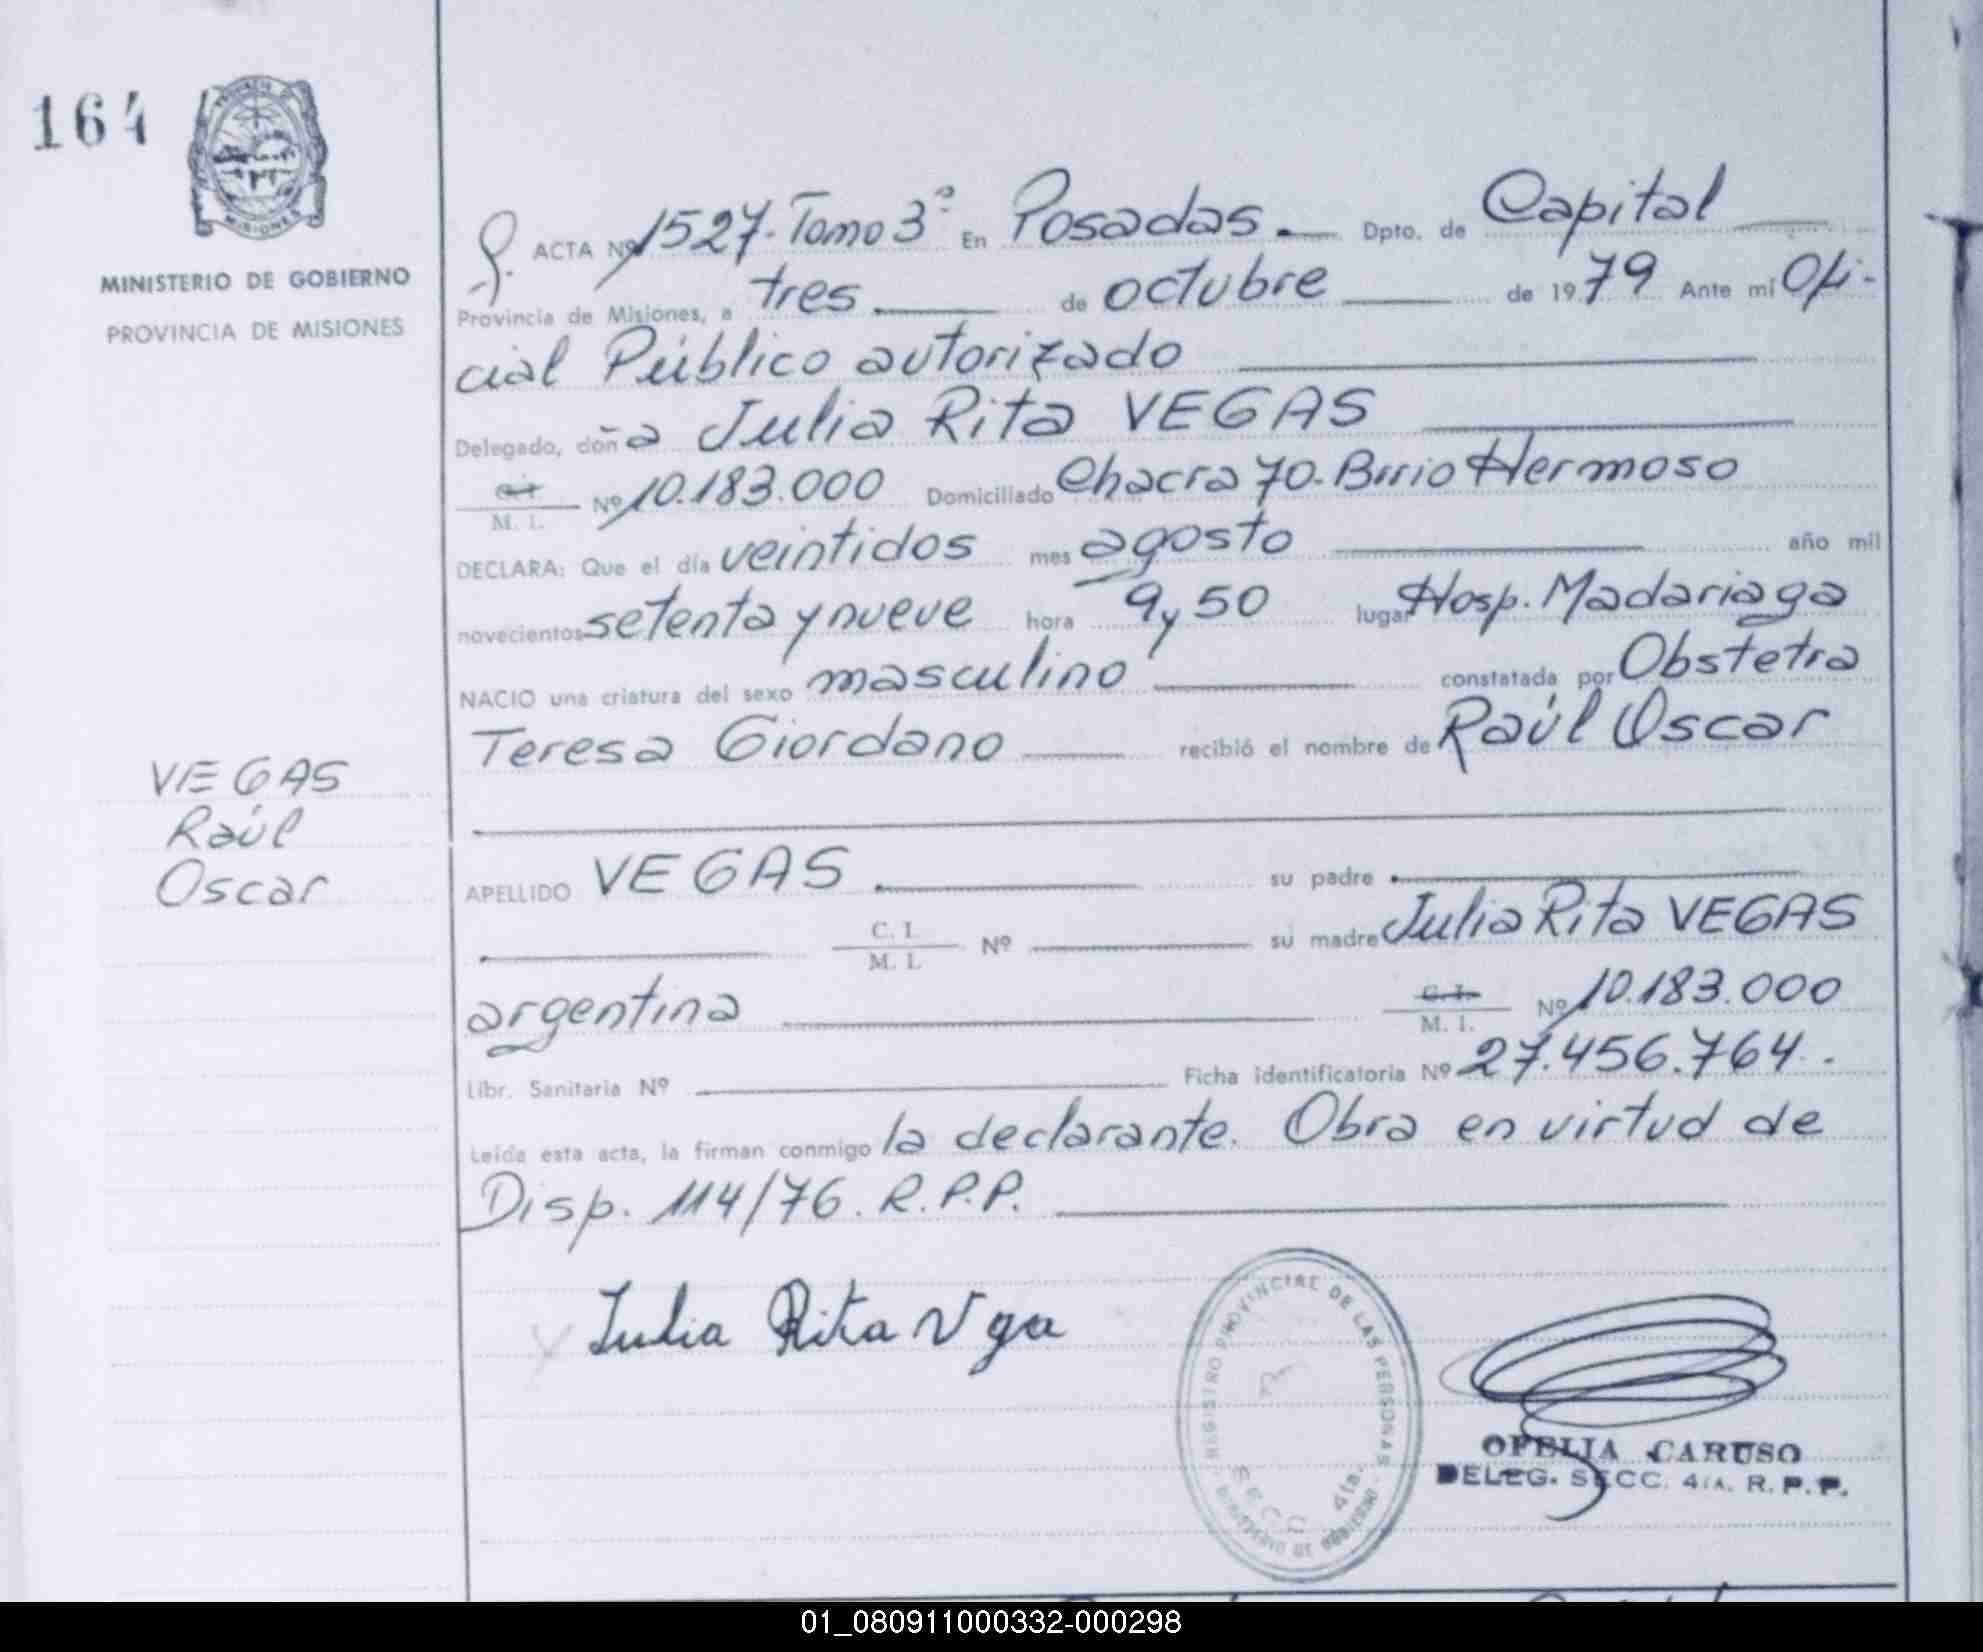 164
MISIONES
MINISTERIO DE GOBIERNO
PROVINCIA DE MISIONES
ACTA Nº 1527. Tomo 3º En Posadas. Dpto. de Capital
Provincia de Misiones, a tres de octubre de 1979 Ante mí Ofi-
cial Público autorizado
Delegado, doña Julia Rita VEGAS
M. I. Nº 10.183.000 Domiciliado Chacra 70. Brrio Hermoso
DECLARA: Que el día veintidos mes agosto año mil
novecientos setenta y nueve hora 9 y 50 lugar Hosp. Madariaga
NACIO una criatura del sexo masculino constatada por Obstetra
Teresa Giordano recibió el nombre de Raúl Oscar
VEGAS
Raúl
Oscar
APELLIDO VEGAS su padre
C. I. M. I. Nº su madre Julia Rita VEGAS
argentina C. I. M. I. Nº 10.183.000
Libr. Sanitaria Nº Ficha identificatoria Nº 27.456.764.
Leída esta acta, la firman conmigo la declarante. Obra en virtud de
Disp. 114/76. R.P.P.
Julia Rita Vga
REGISTRO PROVINCIAL DE LAS PERSONAS
SECC. 4ta.
OFELIA CARUSO
DELEG. SECC. 4ta. R. P. P.
01_080911000332-000298